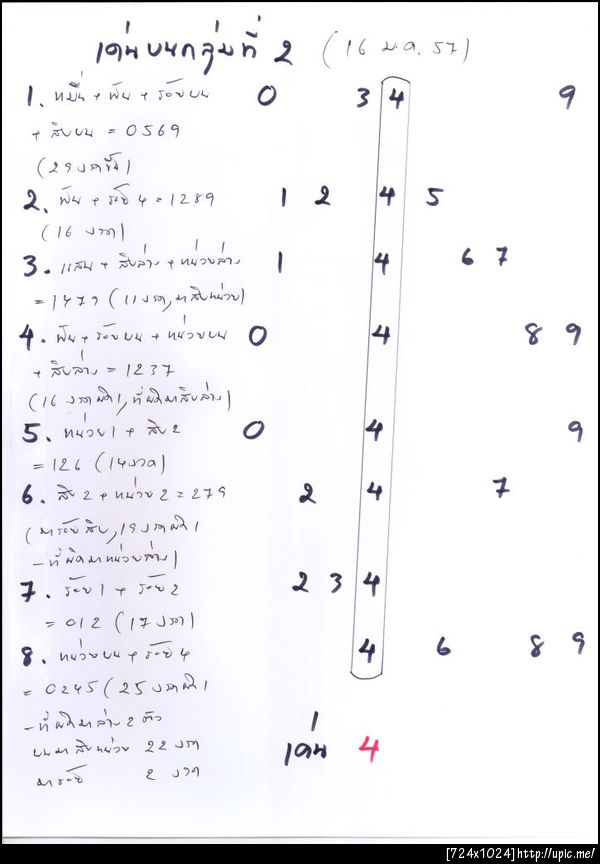 เด่นบนกลุ่มที่ 2 (16 ม.ค. 57)
1. หมื่น + พัน + ร้อยบน 0 3 4 9
+ สิบบน = 0569
(29 งวดขึ้น)
2. พัน + ร้อย 4 = 1289 1 2 4 5
(16 งวด)
3. แสน + สิบล่าง + หน่วยล่าง 1 4 6 7
= 1479 (11 งวด, มาสิบหน่วย)
4. พัน + ร้อยบน + หน่วยบน 0 4 8 9
+ สิบล่าง = 1237
(16 งวดผิด 1, ที่ผิดมาสิบล่าง)
5. หน่วย 1 + สิบ 2 0 4 9
= 126 (14 งวด)
6. สิบ 2 + หน่วย 2 = 279 2 4 7
(มาร้อยสิบ, 19 งวดผิด 1
- ที่ผิดมาหน่วยล่าง)
7. ร้อย 1 + ร้อย 2 2 3 4
= 012 (17 งวด)
8. หน่วยบน + ร้อย 4 4 6 8 9
= 0245 (25 งวดผิด 1
- ที่ผิดมาล่าง 2 ตัว
บนมาสิบหน่วย 22 งวด
เด่น 4
มาร้อย 2 งวด
[724x1024]http://upic.me/